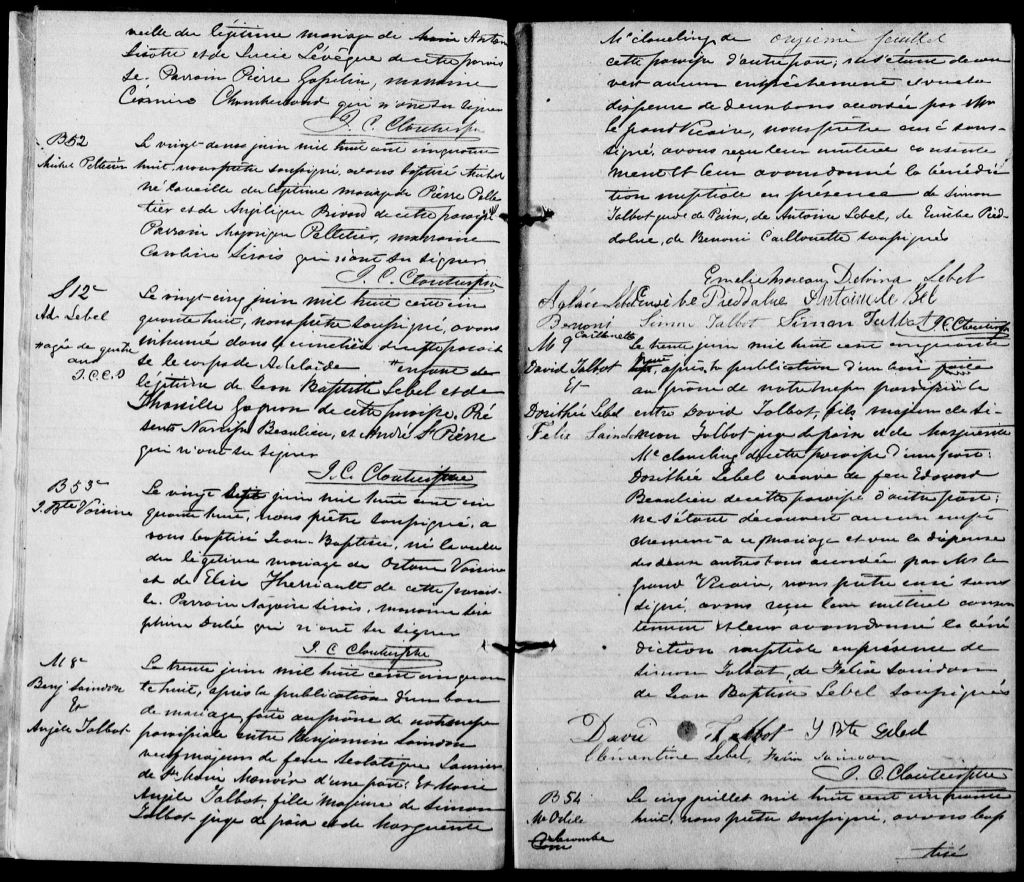 veille du légitime mariage de Anton
Sirois et de Lucie Lévêque de cette parois
se. Parrain Pierre Gosselin, marraine
Chamberland qui n'ont su signer
J. C. Cloutier ptre
B 52
Michel Pelletier
Le vingt-deux juin mil huit cent cinquante
huit, nous prêtre soussigné, avons baptisé Michel
né la veille du légitime mariage de Pierre Pelle
tier et de Angélique de cette paroisse
Parrain Pelletier, marraine
Caroline Sirois qui n'ont su signer
J. C. Cloutier ptre
S 12
Ad. Lebel
agée de quatre
ans
J.C.C.P
Le vingt-cinq juin mil huit cent cin
quante huit, nous prêtre soussigné, avons
inhumé dans le cimetière de cette parois
se le corps de Adelaïde enfant
légitime de Jean Baptiste Lebel et de
Gagnon de cette paroisse. Pré
sents Narcisse Beaulieu, et André St Pierre
qui n'ont su signer
J. C. Cloutier ptre
B 53
J. Bte Voisine
Le vingt Sept juin mil huit cent cin
quante huit, nous prêtre soussigné, a
vons baptisé Jean Baptiste, né la veille
du légitime mariage de Octave Voisine
et de Elise Therriault de cette parois
se. Parrain Sirois, marraine
Dubé qui n'ont su signer
J. C. Cloutier ptre
M 8
Benj Saindon
Et
Angèle Talbot
Le trente juin mil huit cent cinquan
te huit, après la publication d'un ban
de mariage faite au prône de notre messe
paroissiale entre Benjamin Saindon
veuf majeur de feue Scolastique
de d'une part; Et Marie
Angèle Talbot, fille majeure de Simon
Talbot juge de paix et de Marguerite
McClouding de onzième feuillet
cette paroisse d'autre part; ne s'étant décou
vert aucun empêchement et vu la
dispense de deux bans accordée par Mr
le grand Vicaire, nous prêtre curé sous-
signé, avons reçu leur mutuel consente
ment et leur avons donné la bénédic
tion nuptiale en présence de Simon
Talbot juge de Paix, de Antoine Lebel, de Eusèbe Pied-
dalue, de Benoni Caillouette soussignés
Emelie Moreau Delvina Lebel
Aglaée Lebel Eusèbe Pieddalue Antoine Le Bel
Benoni Caillouette Simon Talbot Simon Talbot J. C. Cloutier ptre
M 9
David Talbot
Et
Dorithée Lebel
Felix Saindon
Le trente juin mil huit cent cinquante
huit, après la publication d'un ban faite
au prône de notre messe paroissiale
entre David Talbot, fils majeur de Si-
mon Talbot juge de paix et de Marguerite
McClouding de cette paroisse d'une part;
Dorithée Lebel veuve de feu Edouard
Beaulieu de cette paroisse d'autre part;
ne s'étant découvert aucun empê
chement à ce mariage et vu la dispense
des deux autres bans accordée par Mr le
grand Vicaire, nous prêtre curé sous
signé, avons reçu leur mutuel consen
tement et leur avons donné la béné
diction nuptiale en présence de
Simon Talbot, de Felix Saindon
de Jean Baptiste Lebel soussignés
David Talbot J Bte Lebel
Clémentine Lebel, Felix Saindon
J. C. Cloutier ptre
B 54
M Odile
Le cinq juillet mil huit cent cinquante
huit, nous prêtre soussigné, avons bap
tisé